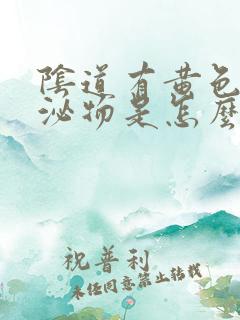 陰道有黃色
泌物是怎麼
祝普利
未经同意禁止转载